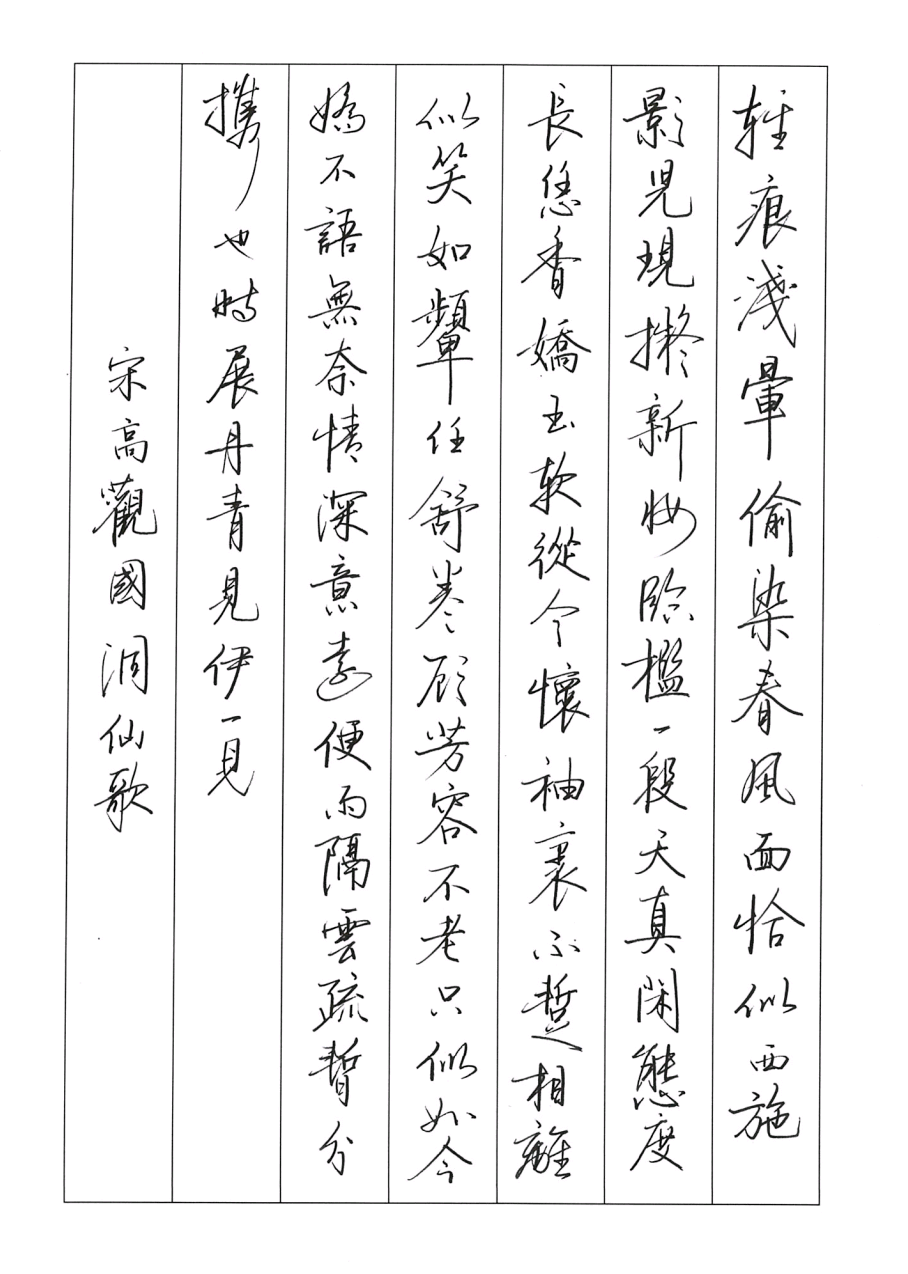 輕痕淺暈偷染春風面恰似西施
影兒現擬新妝臨檻一段天真閑態度
長恁香嬌玉軟從今懷袖裏不蹔相離
似笑如顰任舒卷顾芳容不老只似如今
嬌不語無奈情深意遠便雨隔雲疏暫分
攜也時展丹青見伊一見
宋高觀國洞仙歌